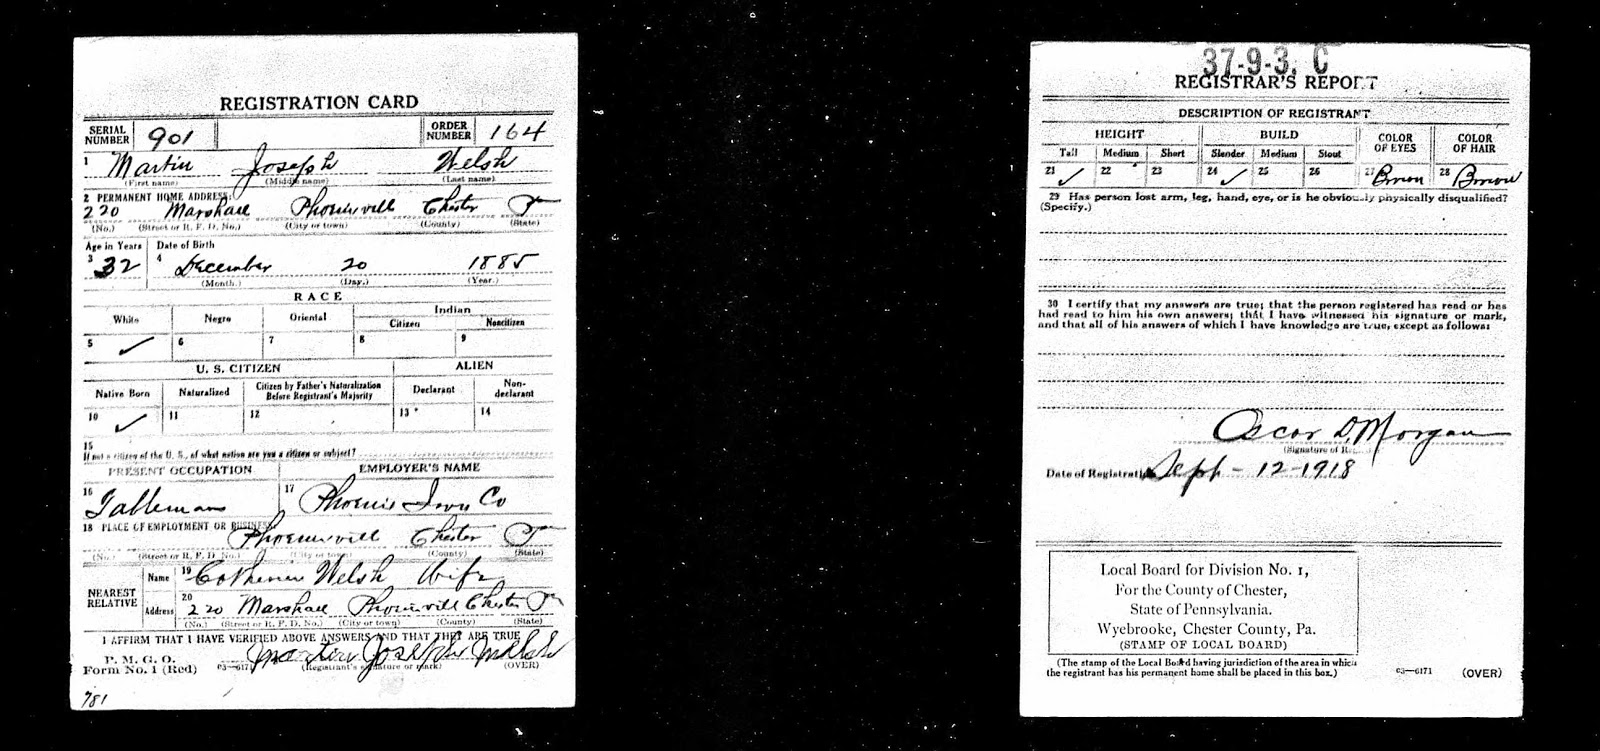 REGISTRATION CARD
SERIAL NUMBER 901 ORDER NUMBER 164
1 Martin Joseph Welsh
(First name) (Middle name) (Last name)
2 PERMANENT HOME ADDRESS:
220 Marshall Phoenixvill Chester
(No.) (Street or R. F. D. No.) (City or town) (County) (State)
Age in Years Date of Birth
3 32 4 December 20 1885
(Month.) (Day.) (Year.)
RACE
White Negro Oriental Indian
Citizen Noncitizen
5 ✓ 6 7 8 9
U. S. CITIZEN ALIEN
Native Born Naturalized Citizen by Father's Naturalization Before Registrant's Majority Declarant Non-declarant
10 ✓ 11 12 13 14
15
If not a citizen of the U. S., of what nation are you a citizen or subject?
PRESENT OCCUPATION EMPLOYER'S NAME
16 17 Phoenix Iron Co
18 PLACE OF EMPLOYMENT OR BUSINESS
Phoenixvill Chester
(No.) (Street or R. F. D. No.) (City or town) (County) (State)
NEAREST RELATIVE
Name 19 Catherine Welsh Wife
Address 20 220 Marshall Phoenixvill Chester
(No.) (Street or R. F. D. No.) (City or town) (County) (State)
I AFFIRM THAT I HAVE VERIFIED ABOVE ANSWERS AND THAT THEY ARE TRUE
P. M. G. O.
Form No. 1 (Red) 03—6171 Martin Joseph Welsh
(Registrant's signature or mark) (OVER)
781
37-9-3. C
REGISTRAR'S REPORT
DESCRIPTION OF REGISTRANT
HEIGHT BUILD COLOR OF EYES COLOR OF HAIR
Tall Medium Short Slender Medium Stout
21 ✓ 22 23 24 ✓ 25 26 27 Brown 28 Brown
29 Has person lost arm, leg, hand, eye, or is he obviously physically disqualified?
(Specify.)
30 I certify that my answers are true; that the person registered has read or has
had read to him his own answers; that I have witnessed his signature or mark,
and that all of his answers of which I have knowledge are true, except as follows:
Oscar D. Morgan
(Signature of
Date of Registration Sept - 12 - 1918
Local Board for Division No. 1,
For the County of Chester,
State of Pennsylvania.
Wyebrooke, Chester County, Pa.
(STAMP OF LOCAL BOARD)
(The stamp of the Local Board having jurisdiction of the area in which
the registrant has his permanent home shall be placed in this box.) 03—6171 (OVER)